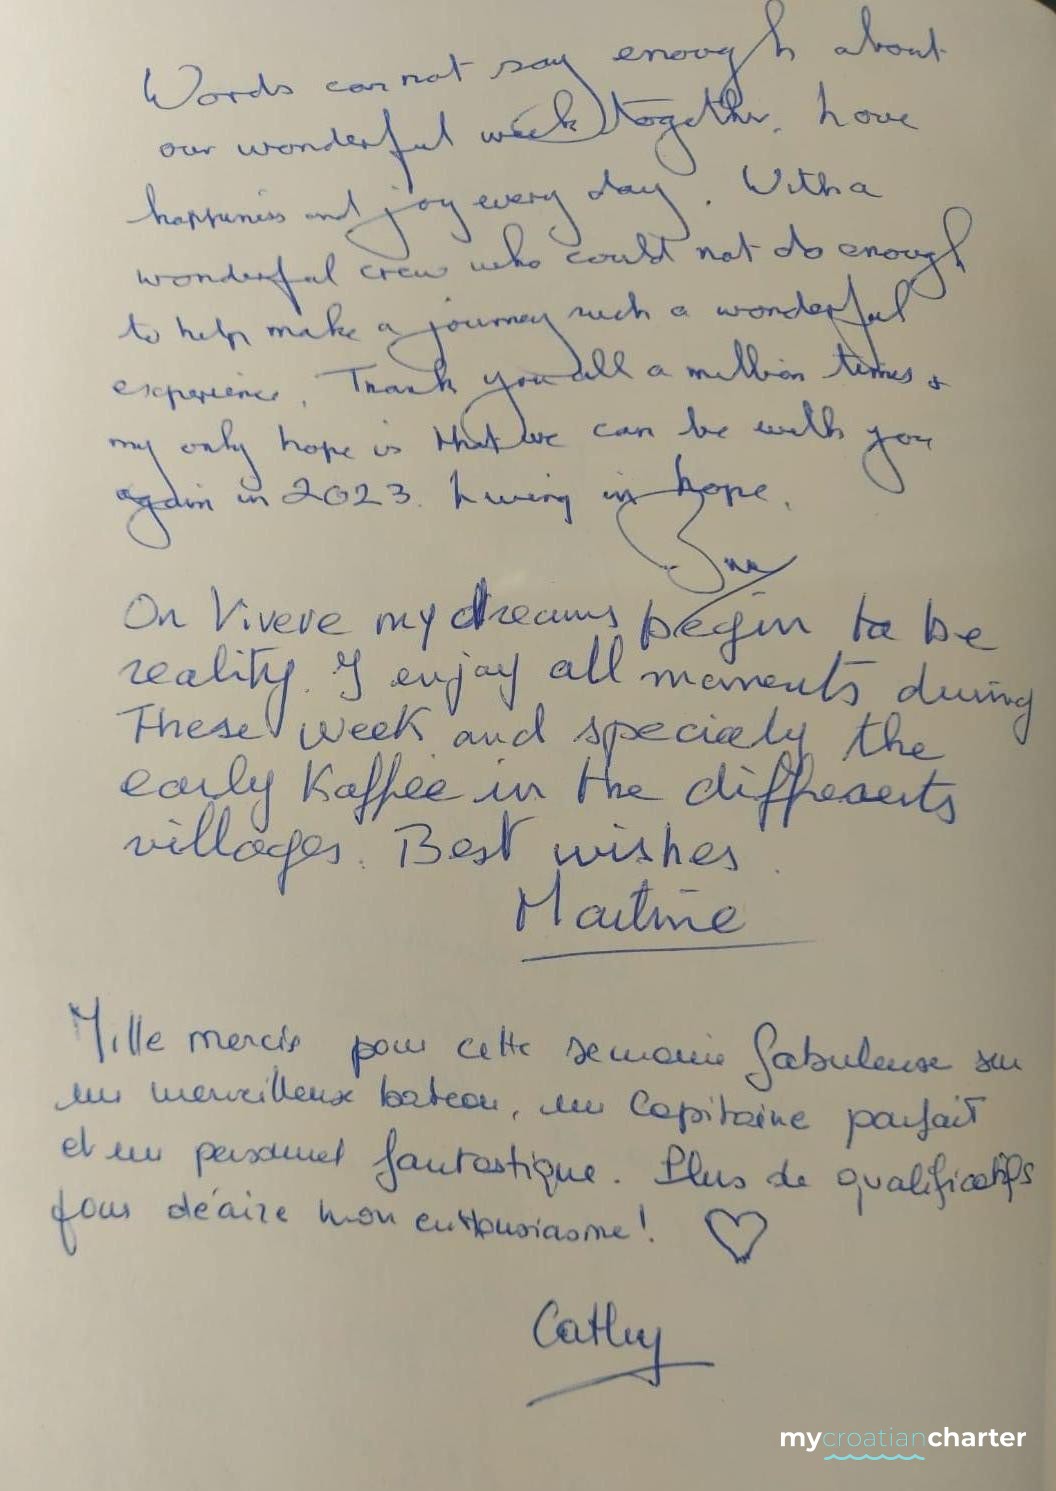 Words can not say enough about
our wonderful week together. Love
happiness and joy every day. With a
wonderful crew who could not do enough
to help make a journey such a wonderful
experience. Thank you all a million times &
my only hope is that we can be with you
again in 2023. Living in hope.
On Vivere my dreams begin to be
reality. I enjoy all moments during
These week and specialy the
early Kaffee in the differents
villages. Best wishes.
Martine
Mille mercis pour cette semaine fabuleuse sur
un merveilleux bateau, un Capitaine parfait
et un personnel fantastique. Plus de qualificatifs
pour décrire mon enthousiasme!
Cathy
mycroatiancharter